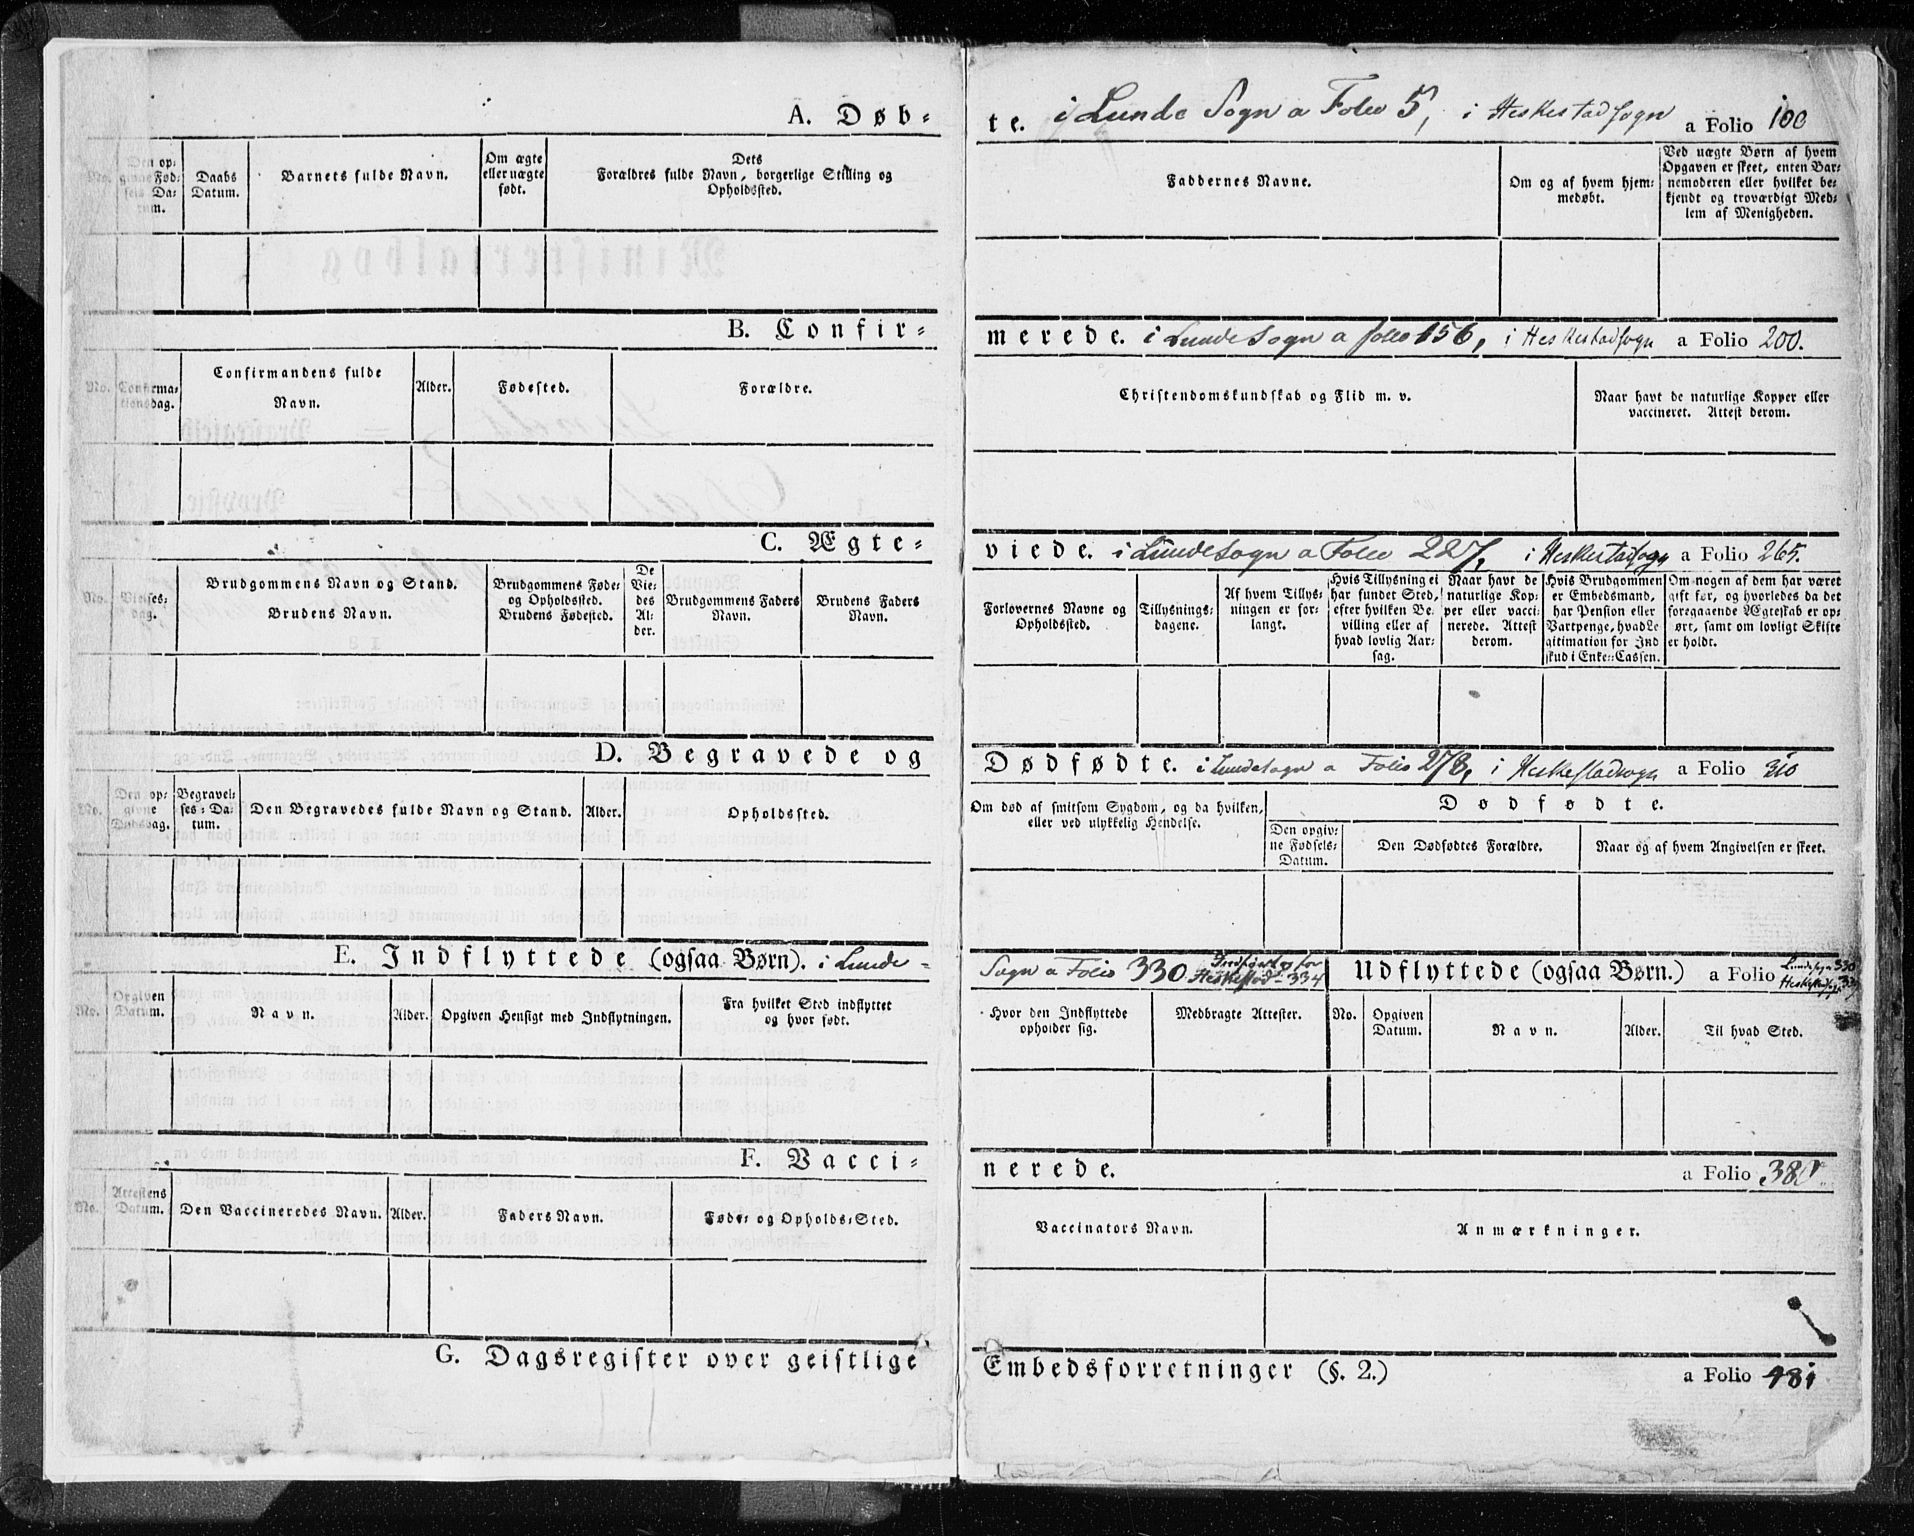 A. Døb-
te. i Lunde Sogn a Folio 5, i Heskestadsogn a Folio 100
No.
Den op-
givne Fød-
sels Da-
tum.
Daabs
Datum.
Barnets fulde Navn.
Om ægte
eller uægte
født.
Dets
Forældres fulde Navn, borgerlige Stilling og
Opholdssted.
Faddernes Navne.
Om og af hvem hjem-
medøbt.
Ved uægte Børn af hvem
Opgaven er skeet, enten Bar-
nemoderen eller hvilket be-
kjendt og troværdigt Med-
lem af Menigheden.
B. Confir-
merede. i Lunde Sogn a folio 156, i Heskestadsogn a Folio 200.
No.
Confirma-
tionsdag.
Confirmandens fulde
Navn.
Alder.
Fødested.
Forældre.
Christendomskundskab og Flid m. v.
Naar havt de naturlige Kopper eller
vaccineret. Attest derom.
C. Ægte-
viede. i Lunde Sogn a Folio 227, i Heskestadsogn a Folio 265.
No.
Vielses-
dag.
Brudgommens Navn og Stand.
Brudens Navn.
Brudgommens Føde-
og Opholdssted.
Brudens Fødested.
De
Vie-
des
Al-
der.
Brudgommens Faders
Navn.
Brudens Faders
Navn.
Forlovernes Navne og
Opholdssted.
Tillysnings-
dagene.
Af hvem Tillys-
ningen er for-
langt.
Hvis Tillysning ei
har fundet Sted,
efter hvilken Be-
villing eller af
hvad lovlig Aar-
sag.
Naar havt de
naturlige Kop-
per eller vacci-
nerede. Attest
derom.
Hvis Brudgommen
er Embedsmand,
har Pension eller
Vartpenge, hvad Le-
gitimation for Ind-
skud i Enke-Cassen.
Om nogen af dem har været
gift før, og hvorledes da det
foregaaende Ægteskab er op-
ørt, samt om lovligt Skifte
er holdt.
D. Begravede og
Dødfødte. i Lunde Sogn a Folio 278, i Heskestadsogn a Folio 310
No.
Den op-
givne
Dødsdag.
Begravel-
ses-Da-
tum.
Den Begravedes fulde Navn og Stand.
Alder.
Opholdssted.
Om død af smitsom Sygdom, og da hvilken,
eller ved ulykkelig Hendelse.
Dødfødte.
Den opgiv-
ne Fødsels-
Datum.
Den Dødfødtes Forældre.
Naar og af hvem Angivelsen er skeet.
E. Indflyttede (ogsaa Børn). i Lunde-
Sogn a Folio 330. Heskestad - 334
Udflyttede (ogsaa Børn.) a Folio
No.
Opgiven
Datum.
Navn.
Alder.
Opgiven Hensigt med Indflytningen.
Fra hvilket Sted indflyttet
og hvor født.
Hvor den Indflyttede
opholder sig.
Medbragte Attester.
No.
Opgiven
Datum.
Navn.
Alder.
Til hvad Sted.
F. Vacci-
nerede. a Folio
No.
Attestens
Datum.
Den Vaccineredes Navn.
Alder.
Faders Navn.
Føde- og Opholds-Sted.
Vaccinators Navn.
Anmærkninger.
G. Dagsregister over geistlige
Embedsforretninger (§. 2.) a Folio 481